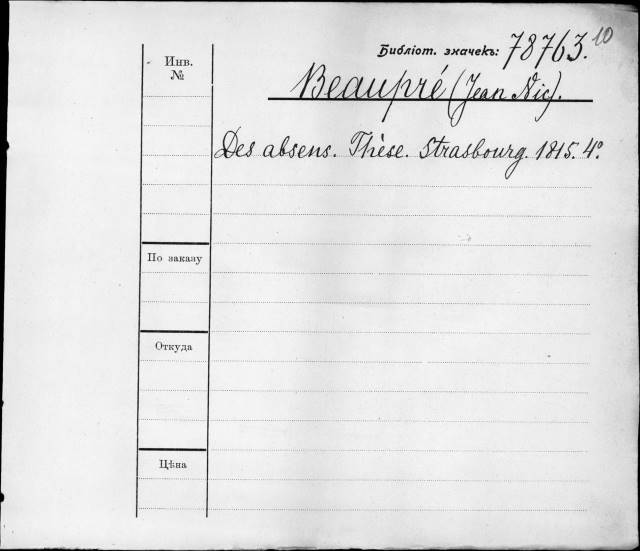 Библіот. значекъ: 78763. 10
Инв.
№
Beaupré (Jean Nic).
Des absens. Thèse. Strasbourg. 1815. 4°
По заказу
Откуда
Цѣна